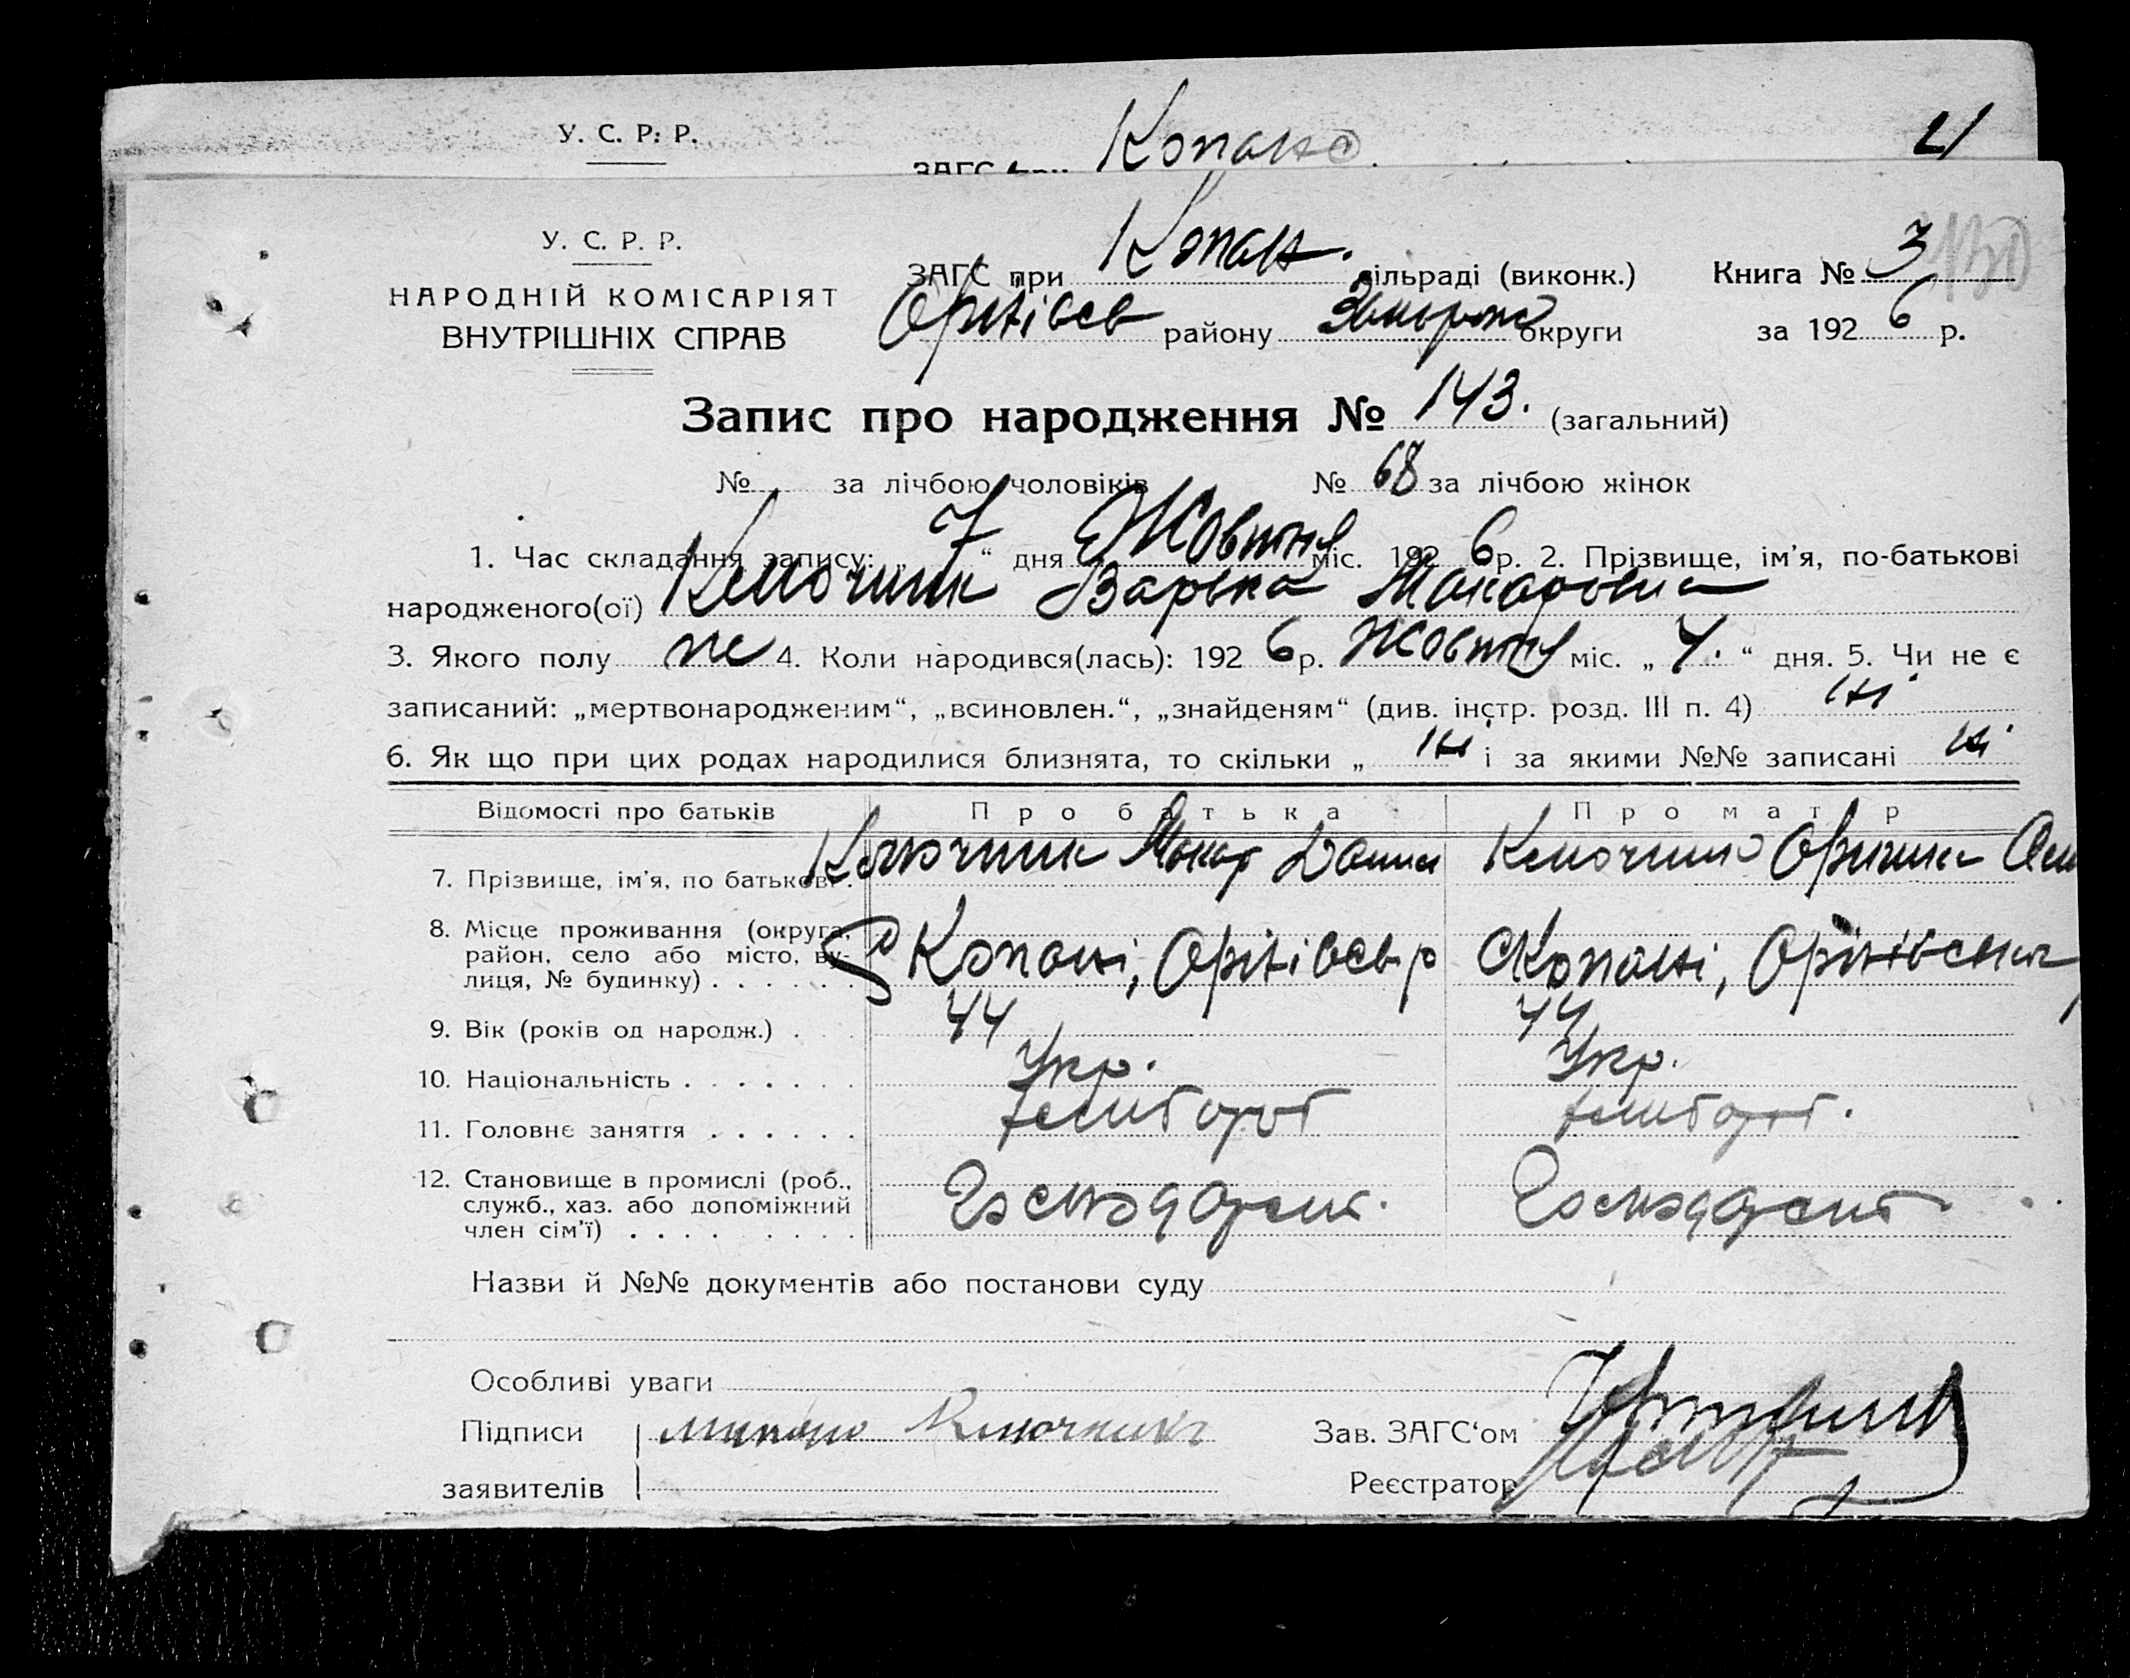 У. С. Р. Р.
ЗАГС при Копано
У. С. Р. Р.
НАРОДНІЙ КОМІСАРІЯТ
ВНУТРІШНІХ СПРАВ
ЗАГС при Копан. сільраді (виконк.) Книга № 3
Оріхівсь району округи за 1926 р.
Запис про народження № 143. (загальний)
№ за лічбою чоловіків № 68 за лічбою жінок
1. Час складання запису: „ 7 “ дня Жовтня міс. 1926 р. 2. Прізвище, ім'я, по-батькові
народженого(ої) Ключник Варвка Макаровна
3. Якого полу же 4. Коли народився(лась): 1926 р. Жовтня міс. „ 4. “ дня. 5. Чи не є
записаний: „мертвонародженим“, „всиновлен.“, „знайденям“ (див. інстр. розд. III п. 4) ні
6. Як що при цих родах народилися близнята, то скільки „ ні і за якими №№ записані ні
Відомості про батьків Про батька Про матір
7. Прізвище, ім'я, по батькові. Ключник Макар Данил Ключник Оришка
8. Місце проживання (округа, район, село або місто, вулиця, № будинку) . . . . . . с Копані, Оріхівсь р с Копані, Оріхівськ
9. Вік (років од народж.) . 44 44
10. Національність . . . . . . . Укр. Укр.
11. Головне заняття . . . . . . хлібороб хлібороб.
12. Становище в промислі (роб., служб., хаз. або допоміжний член сім'ї) . . . . . . . . .
Назви й №№ документів або постанови суду
Особливі уваги
Підписи Ключник Зав. ЗАГС'ом
заявителів Реєстратор